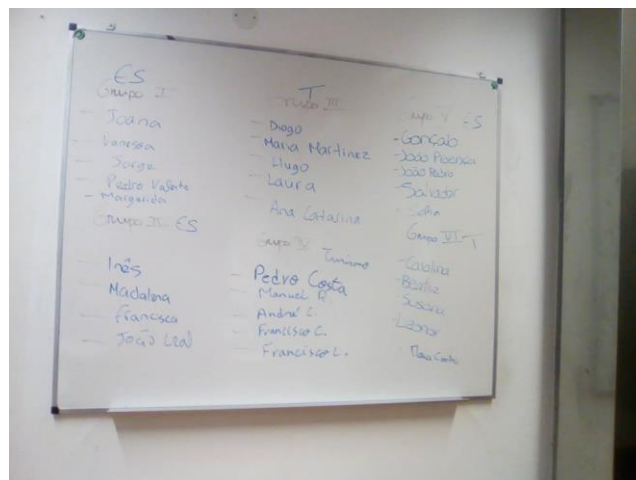 ES
Grupo I
Joana
Vanessa
Jorge
Pedro Valente
- Margarida
Grupo II - ES
Inês
Madalena
Francisca
João Leal
T
Grupo III
- Diogo
- Maria Martinez
- Hugo
- Laura
- Ana Catarina
Grupo IV
Turismo
- Pedro Costa
- Manuel P.
- André C.
- Francisco C.
- Francisco L.
Grupo V ES
- Gonçalo
- João Proença
- João Pedro
- Salvador
- Sofia
Grupo VI - T
- Carolina
- Beatriz
- Susana
- Leonor